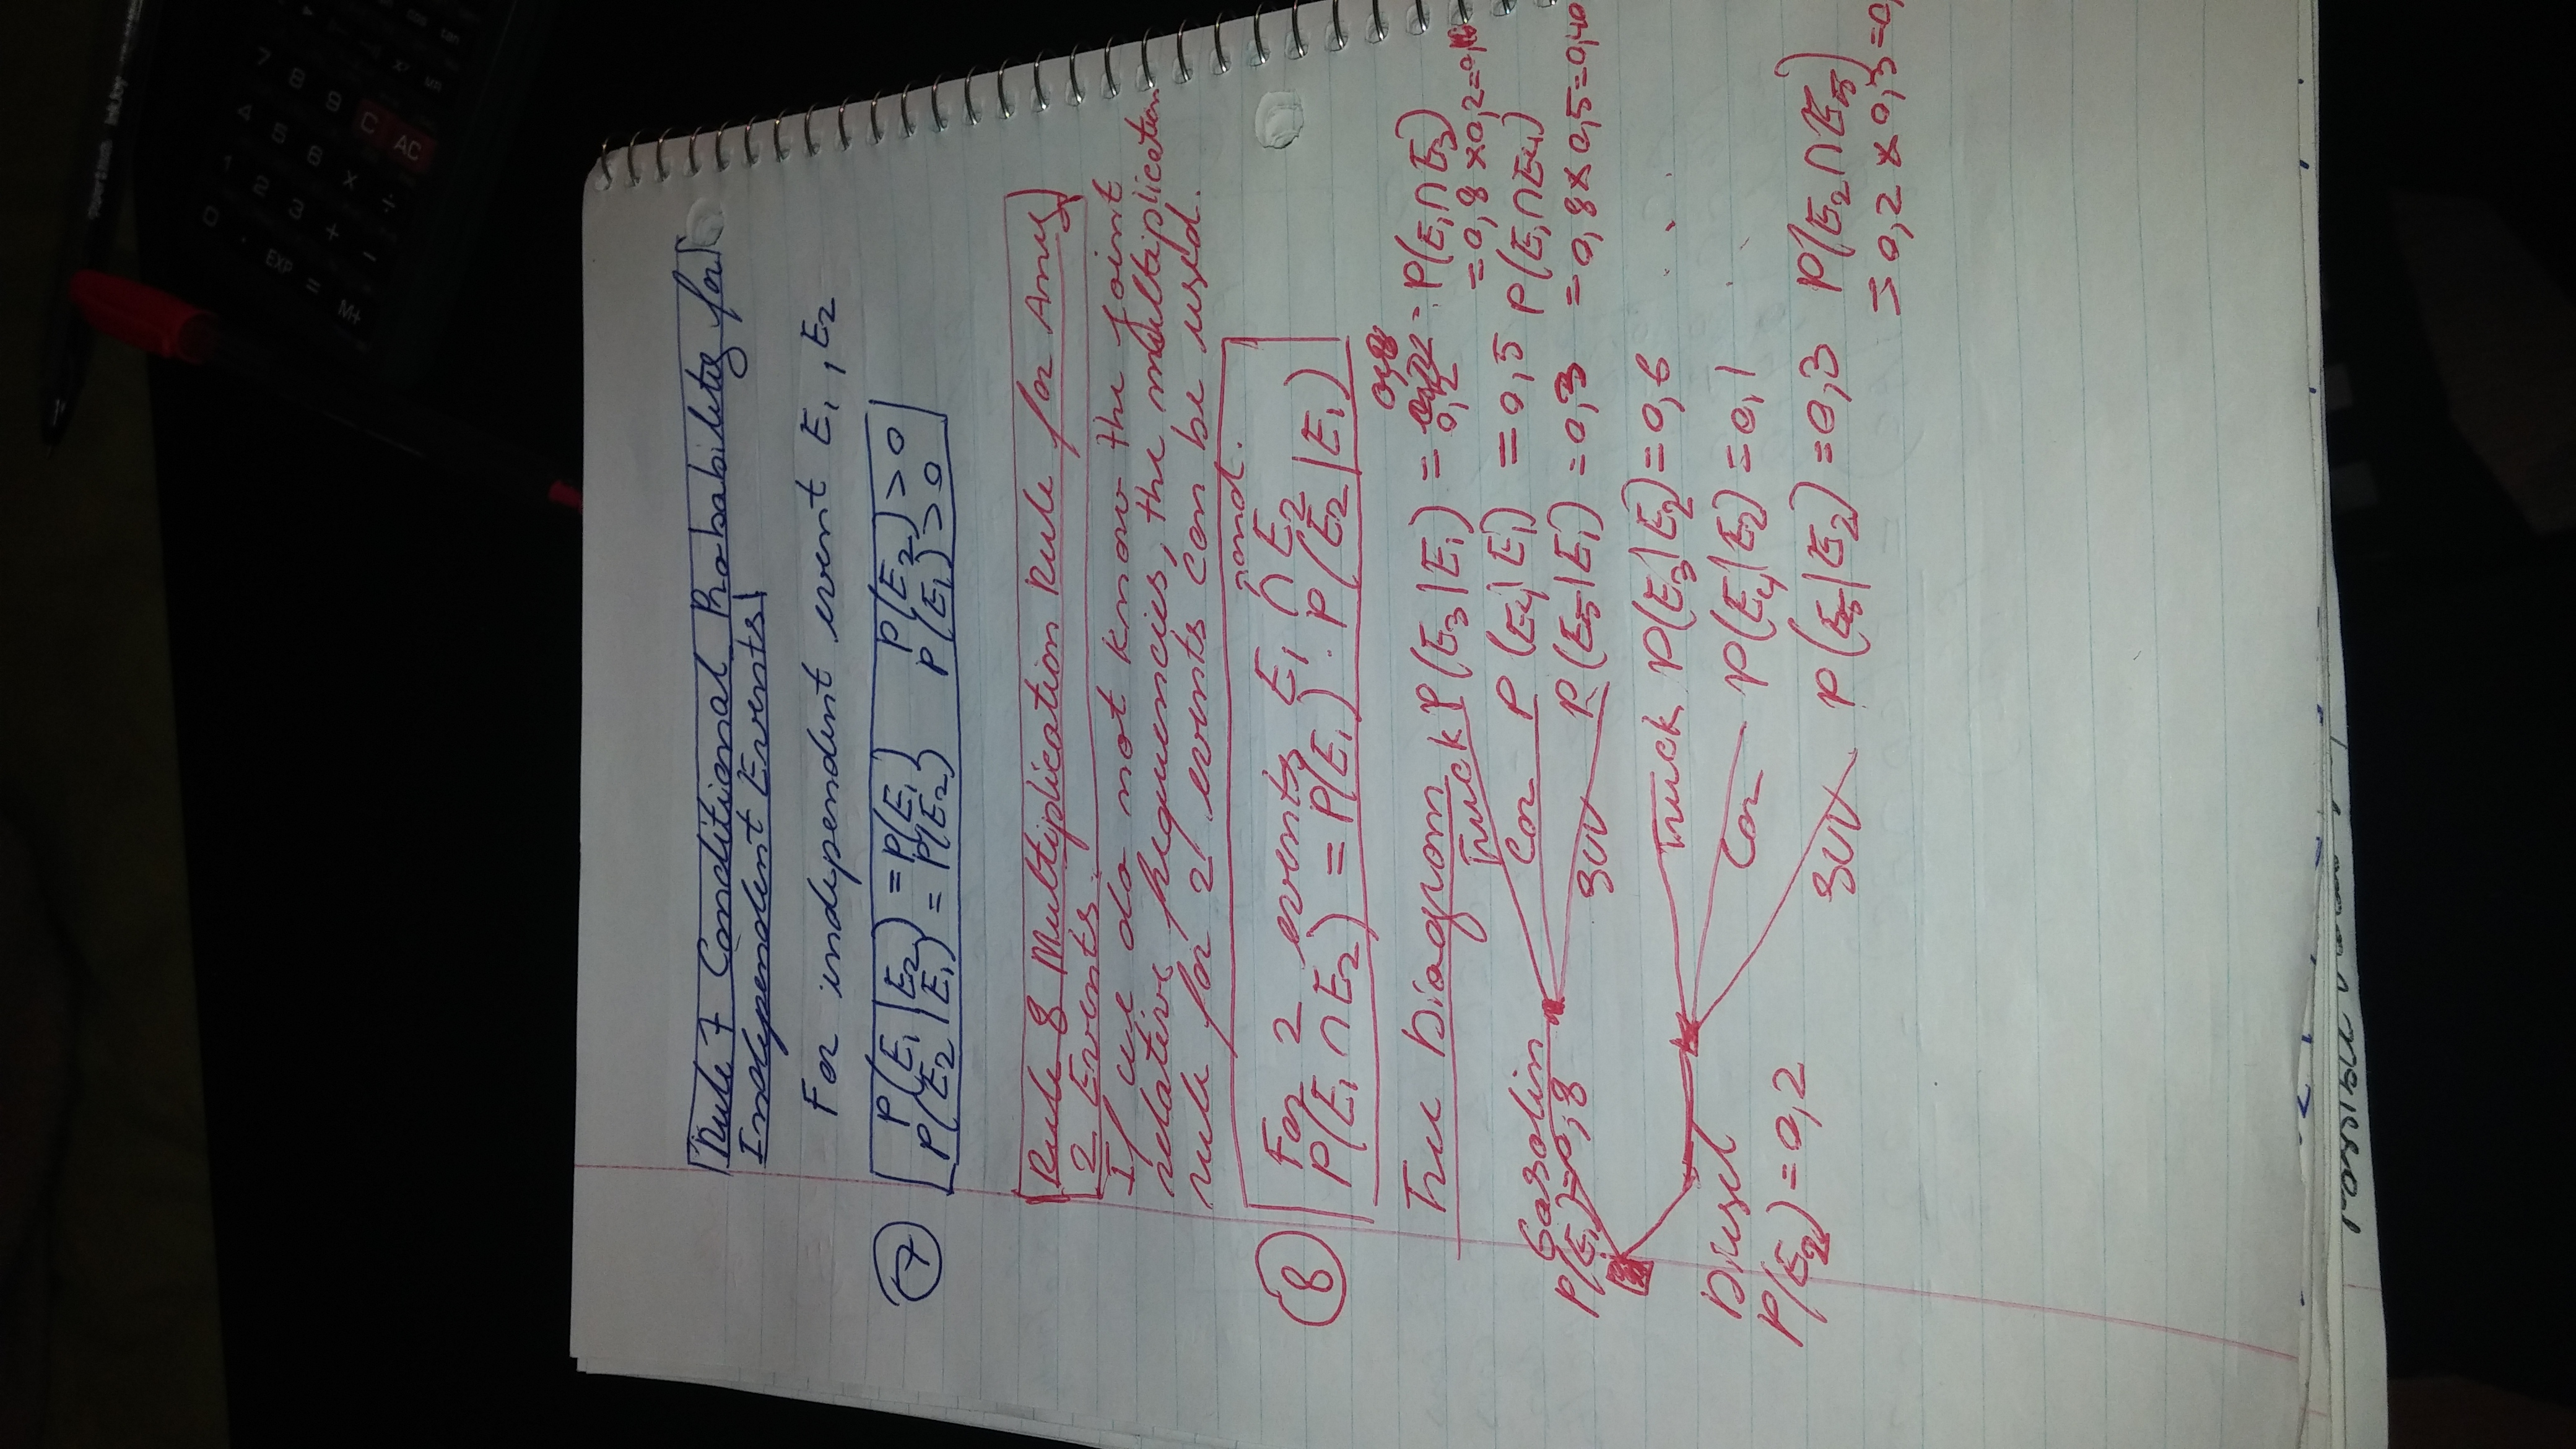 Rule 7 Conditional Probability for
Independent Events
For independent event E1, E2
7
P(E1|E2) = P(E1) P(E2) > 0
P(E2|E1) = P(E2) P(E1) > 0
Rule 8 Multiplication Rule for Any
2 Events.
If we do not know the joint
relative frequencies, the multiplication
rule for 2 events can be used.
8
For 2 events E1 and E2
P(E1 ∩ E2) = P(E1) . P(E2|E1)
Tree Diagram
Truck P(E3|E1) = 0,2 P(E1∩E3)
= 0,8 x 0,2 =
Gasolin
P(E1) = 0,8
Car P(E4|E1) = 0,5 P(E1∩E4)
= 0,8 x 0,5 = 0,40
SUV P(E5|E1) = 0,3
Truck P(E3|E2) = 0,6
Diesel
P(E2) = 0,2
Car P(E4|E2) = 0,1
SUV P(E5|E2) = 0,3 P(E2∩E5)
= 0,2 x 0,3 = 0,
7 8 9 C AC
4 5 6 x ÷
1 2 3 + -
0 . EXP = M+
tan
cos
Papermate InkJoy